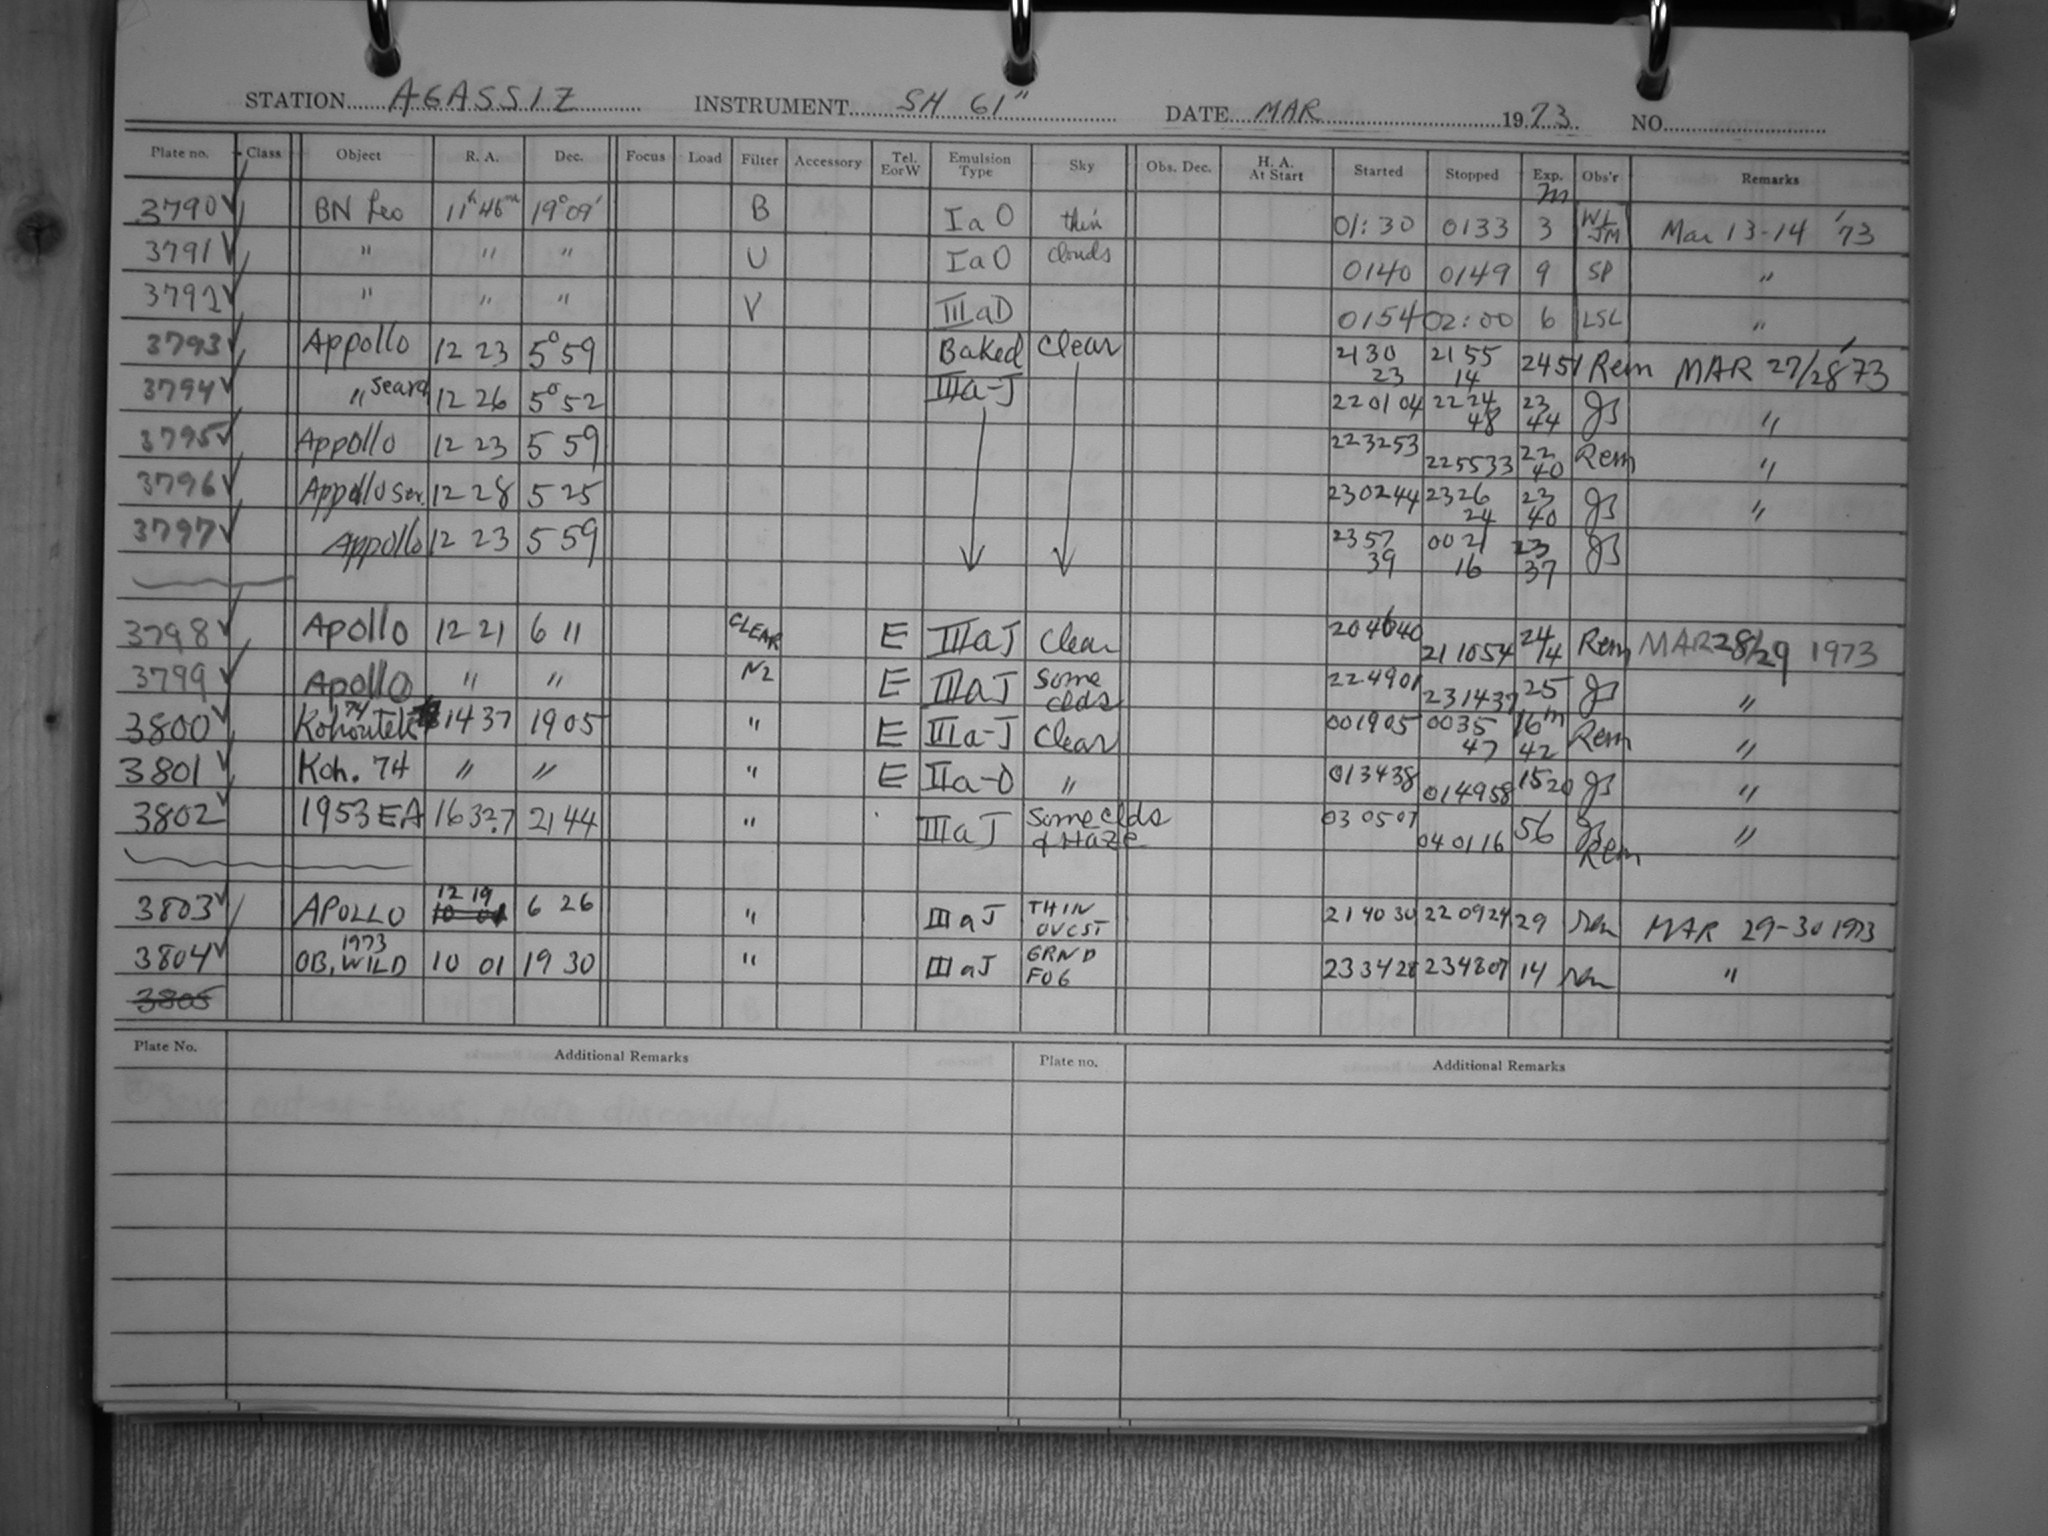 STATION AGASSIZ INSTRUMENT SH 61" DATE MAR 1973 NO
Plate no. Class Object R. A. Dec. Focus Load Filter Accessory Tel. EorW Emulsion Type Sky Obs. Dec. H. A. At Start Started Stopped Exp. m Obs'r Remarks
3790 BN Leo 11h 46m 19° 09' B IaO thin 01:30 0133 3 WL JM Mar 13-14 '73
3791 " " " U IaO clouds 0140 0149 9 SP "
3792 " " " V IIIaD 0154 02:00 6 LSL "
3793 Appollo 12 23 5° 59 Baked Clear 2130 23 2155 14 2451 Rem MAR 27/28 '73
3794 " 12 26 5° 52 IIIa-J 220104 2224 48 23 44 JS "
3795 Appollo 12 23 5 59 223253 225533 22 40 Rem "
3796 Appollo 12 28 5 25 230244 2326 24 23 40 JS "
3797 Appollo 12 23 5 59 2357 39 0021 16 23 37 JS
3798 Apollo 12 21 6 11 CLEAR E IIIaJ Clear 204640 211054 24/4 Rem MAR 28/29 1973
3799 Apollo " " N2 E IIIaJ Some clds 224901 231437 25 JS "
3800 Kohoutek 74 14 37 19 05 " E IIIa-J Clear 001905 0035 47 16m 42 Rem "
3801 Koh. 74 " " " E IIa-O " 013438 014958 1520 JS "
3802 1953 EA 16 32.7 21 44 " IIIaJ Some clds & Haze 030507 040116 56 JS Rem "
3803 APOLLO 12 19 6 26 " IIIaJ THIN OVCST 214030 220924 29 rem MAR 29-30 1973
3804 1973 OB, WILD 10 01 19 30 " IIIaJ GRND FOG 233428 234807 14 rem "
3805
Plate No. Additional Remarks Plate no. Additional Remarks